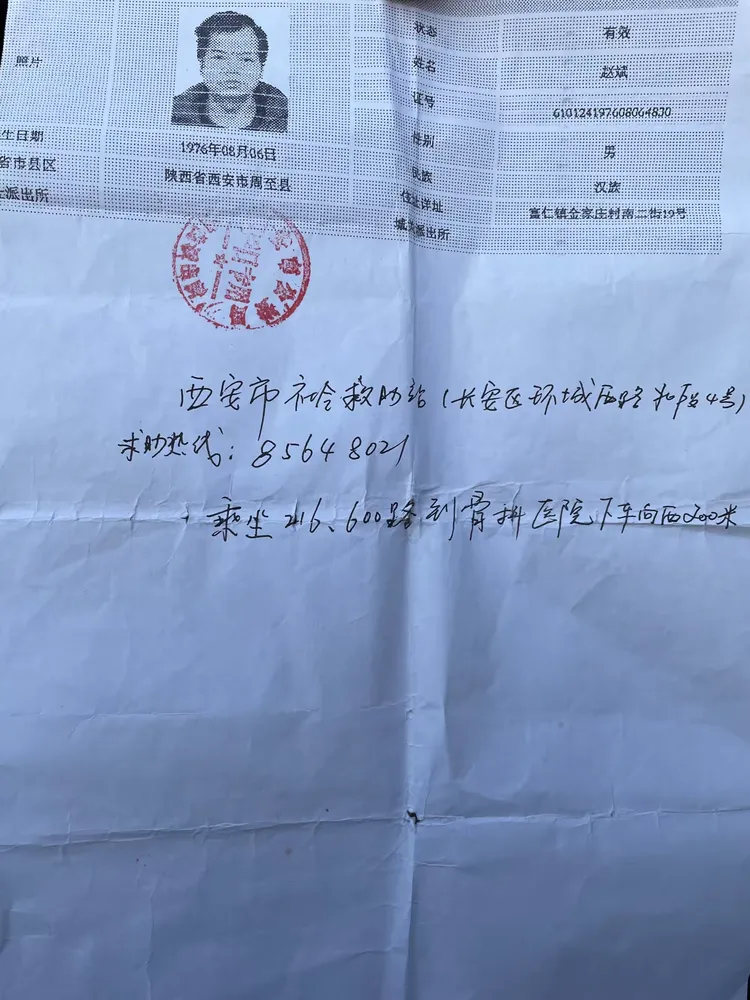 照片
状态 有效
姓名 赵斌
证号 610124197608064830
生日期 1976年08月06日
性别 男
省市县区 陕西省西安市周至县
民族 汉族
派出所
住址详址 富仁镇金家庄村南二街19号
派出所
西安市社会救助站(长安区环城西路北段4号)
求助热线:85648021
乘坐216、600路到骨科医院下车向西200米